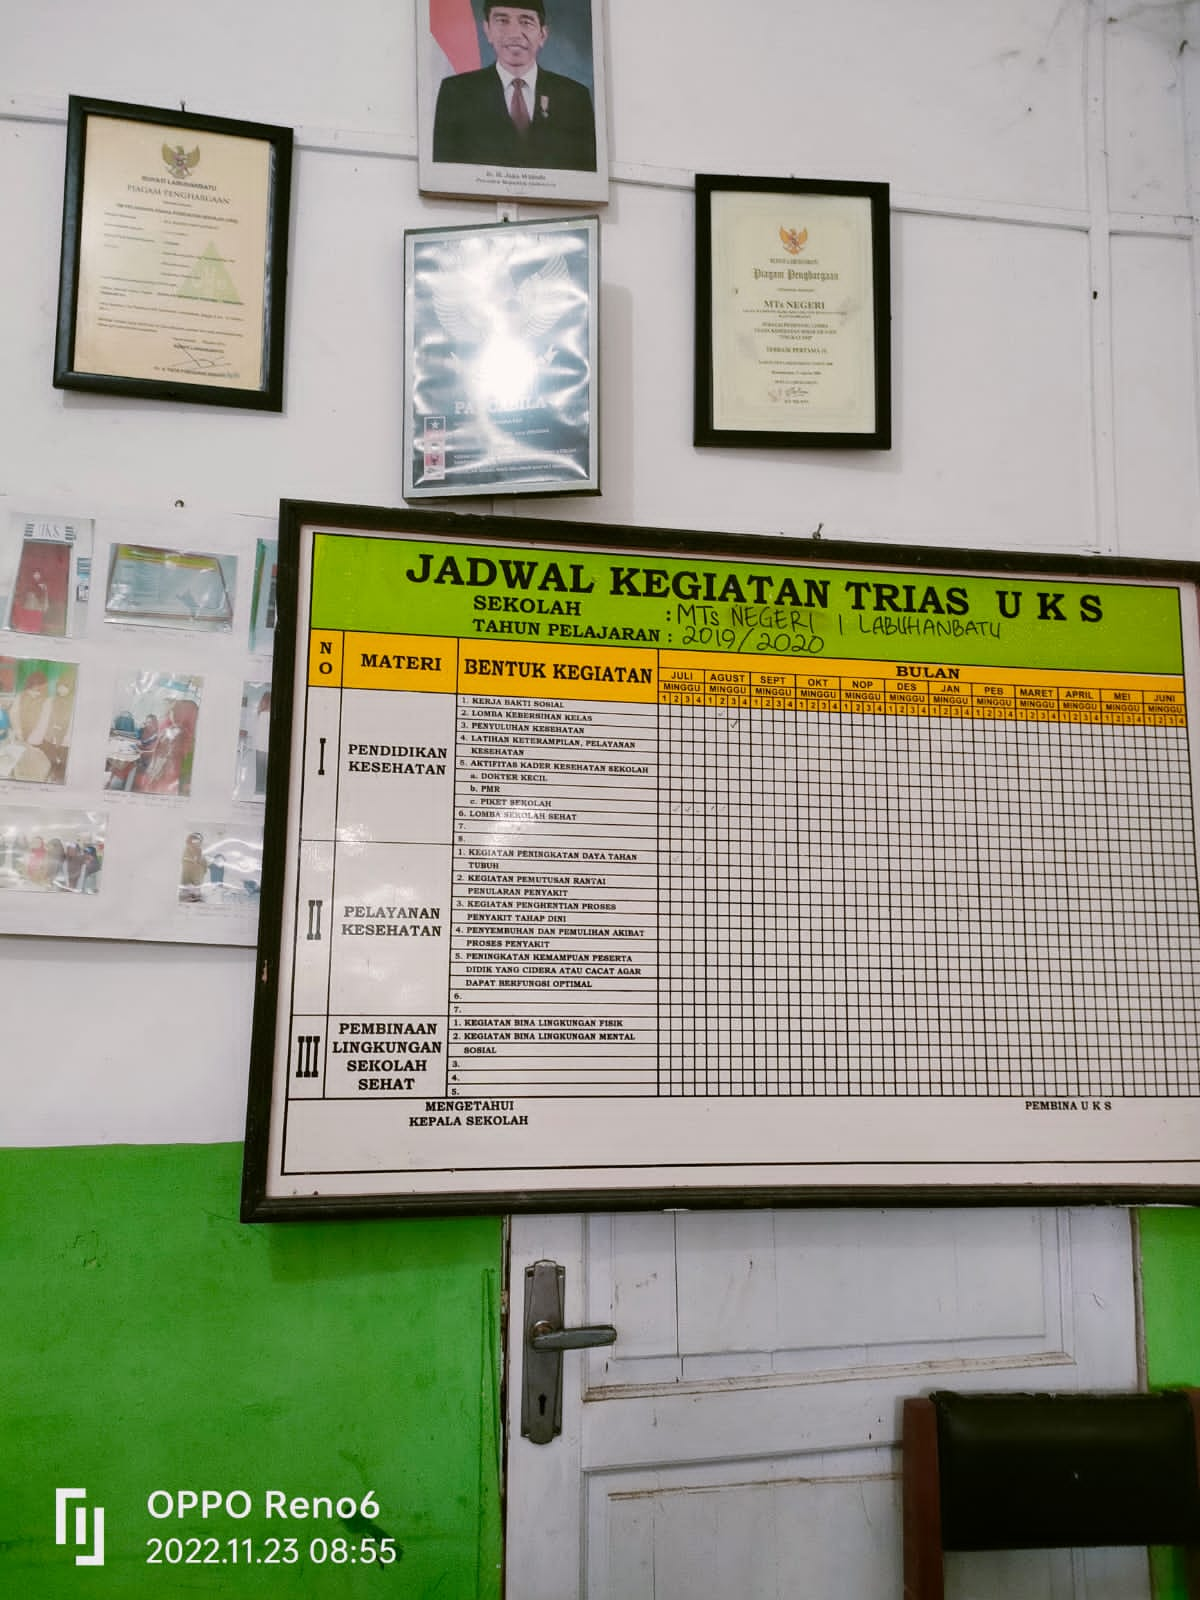 Ir. H. Joko Widodo
Presiden Republik Indonesia
BUPATI LABUHANBATU
PIAGAM PENGHARGAAN
BUPATI LABUHANBATU
Piagam Penghargaan
MTs NEGERI
TERBAIK PERTAMA
PANCASILA
UKS
JADWAL KEGIATAN TRIAS U K S
SEKOLAH : MTs NEGERI 1 LABUHANBATU
TAHUN PELAJARAN : 2019/2020
NO MATERI BENTUK KEGIATAN BULAN
JULI AGUST SEPT OKT NOP DES JAN PEB MARET APRIL MEI JUNI
MINGGU MINGGU MINGGU MINGGU MINGGU MINGGU MINGGU MINGGU MINGGU MINGGU MINGGU MINGGU
1 2 3 4 1 2 3 4 1 2 3 4 1 2 3 4 1 2 3 4 1 2 3 4 1 2 3 4 1 2 3 4 1 2 3 4 1 2 3 4 1 2 3 4 1 2 3 4
I
PENDIDIKAN
KESEHATAN
1. KERJA BAKTI SOSIAL
2. LOMBA KEBERSIHAN KELAS
3. PENYULUHAN KESEHATAN
4. LATIHAN KETERAMPILAN, PELAYANAN
KESEHATAN
5. AKTIFITAS KADER KESEHATAN SEKOLAH
a. DOKTER KECIL
b. PMR
c. PIKET SEKOLAH
6. LOMBA SEKOLAH SEHAT
7.
8.
II
PELAYANAN
KESEHATAN
1. KEGIATAN PENINGKATAN DAYA TAHAN
TUBUH
2. KEGIATAN PEMUTUSAN RANTAI
PENULARAN PENYAKIT
3. KEGIATAN PENGHENTIAN PROSES
PENYAKIT TAHAP DINI
4. PENYEMBUHAN DAN PEMULIHAN AKIBAT
PROSES PENYAKIT
5. PENINGKATAN KEMAMPUAN PESERTA
DIDIK YANG CIDERA ATAU CACAT AGAR
DAPAT BERFUNGSI OPTIMAL
6.
7.
III
PEMBINAAN
LINGKUNGAN
SEKOLAH
SEHAT
1. KEGIATAN BINA LINGKUNGAN FISIK
2. KEGIATAN BINA LINGKUNGAN MENTAL
SOSIAL
3.
4.
5.
MENGETAHUI
KEPALA SEKOLAH
PEMBINA U K S
OPPO Reno6
2022.11.23 08:55